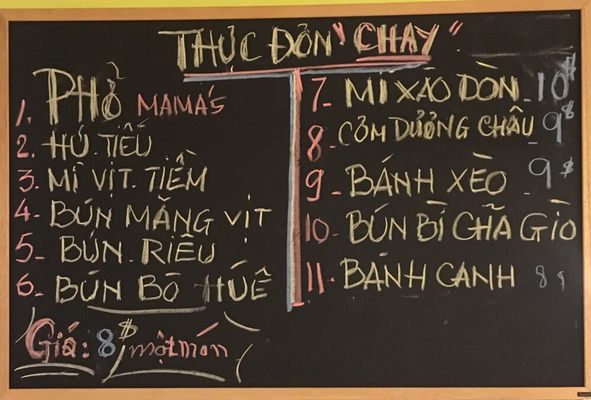 THỰC ĐƠN "CHAY"
1. PHỞ MAMA'S
2. HỦ TIẾU
3. MÌ VỊT TIỀM
4- BÚN MĂNG VỊT
5- BÚN RIÊU
6- BÚN BÒ HUẾ
Giá: 8$/một món
7- MÌ XÀO DÒN - 10$
8- CƠM DƯƠNG CHÂU - 9$
9- BÁNH XÈO - 9$
10- BÚN BÌ CHÃ GIÒ
11- BÁNH CANH 8$